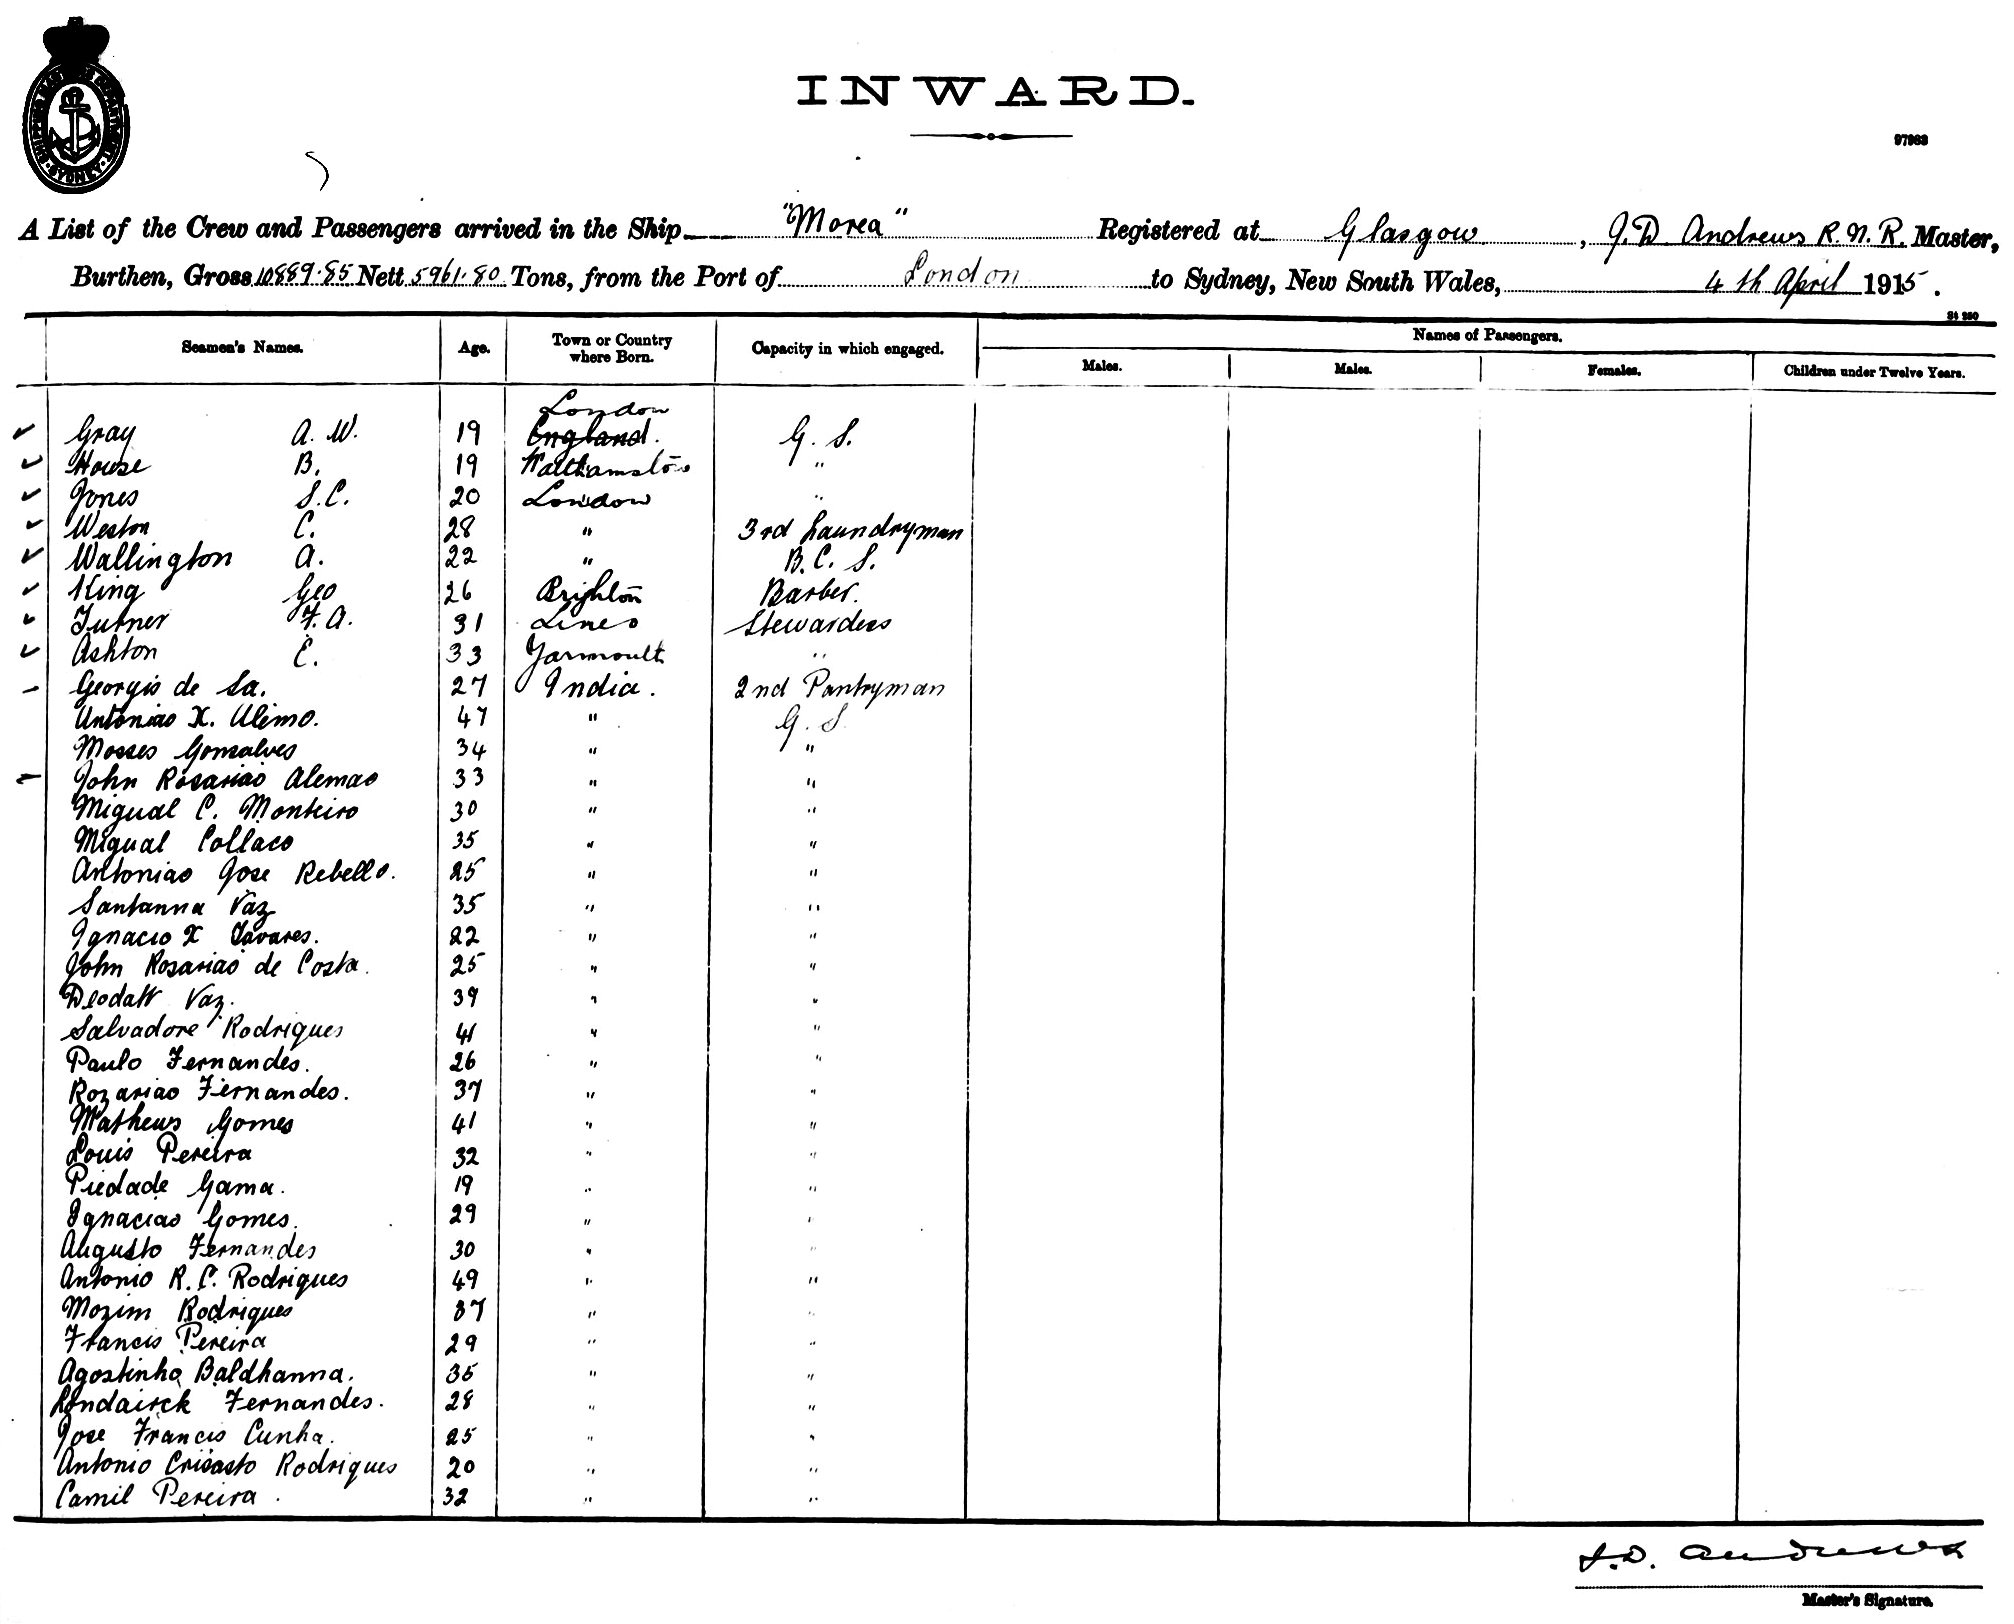 SHIPPING MASTER'S DEPARTMENT SYDNEY
INWARD.
97983
A List of the Crew and Passengers arrived in the Ship "Morea" Registered at Glasgow, J. D Andrews R. N. R. Master,
Burthen, Gross 10889.85 Nett 5961.80 Tons, from the Port of London to Sydney, New South Wales, 4th April 1915.
St 230
Seamen's Names. Age. Town or Country where Born. Capacity in which engaged. Names of Passengers.
Males. Males. Females. Children under Twelve Years.
London
Gray A. W. 19 England. G. S.
House B. 19 Walthamstow "
Jones S. C. 20 London "
Weston C. 28 " 3rd Laundryman
Wallington A. 22 " B. C. S.
King Geo 26 Brighton Barber.
Turner F. A. 31 Lines Stewardess
Ashton E. 33 Yarmouth "
Georgis de Sa. 27 India. 2nd Pantryman
Antoniao X. Ulemo. 47 " G. S.
Mosses Gonsalves 34 " "
John Rosariao Alemao 33 " "
Migual C. Monteiro 30 " "
Migual Collaco 35 " "
Antoniao Jose Rebello. 25 " "
Santanna Vaz 35 " "
Ignacio X Tavares. 22 " "
John Rosariao de Costa. 25 " "
Deodatt Vaz. 39 " "
Salvadore Rodrigues 41 " "
Paulo Fernandes. 26 " "
Rozariao Fernandes. 37 " "
Mathews Gomes 41 " "
Louis Pereira 32 " "
Piedade Gama. 19 " "
Ignaciao Gomes. 29 " "
Augusto Fernandes 30 " "
Antonio R. C. Rodrigues 49 " "
Mozim Rodrigues 37 " "
Francis Pereira 29 " "
Agostinho Baldhanna. 35 " "
Fernandes. 28 " "
Jose Francis Cunha. 25 " "
Antonio Crisasto Rodrigues 20 " "
Camil Pereira. 32 " "
J. D. Andrews
Master's Signature.